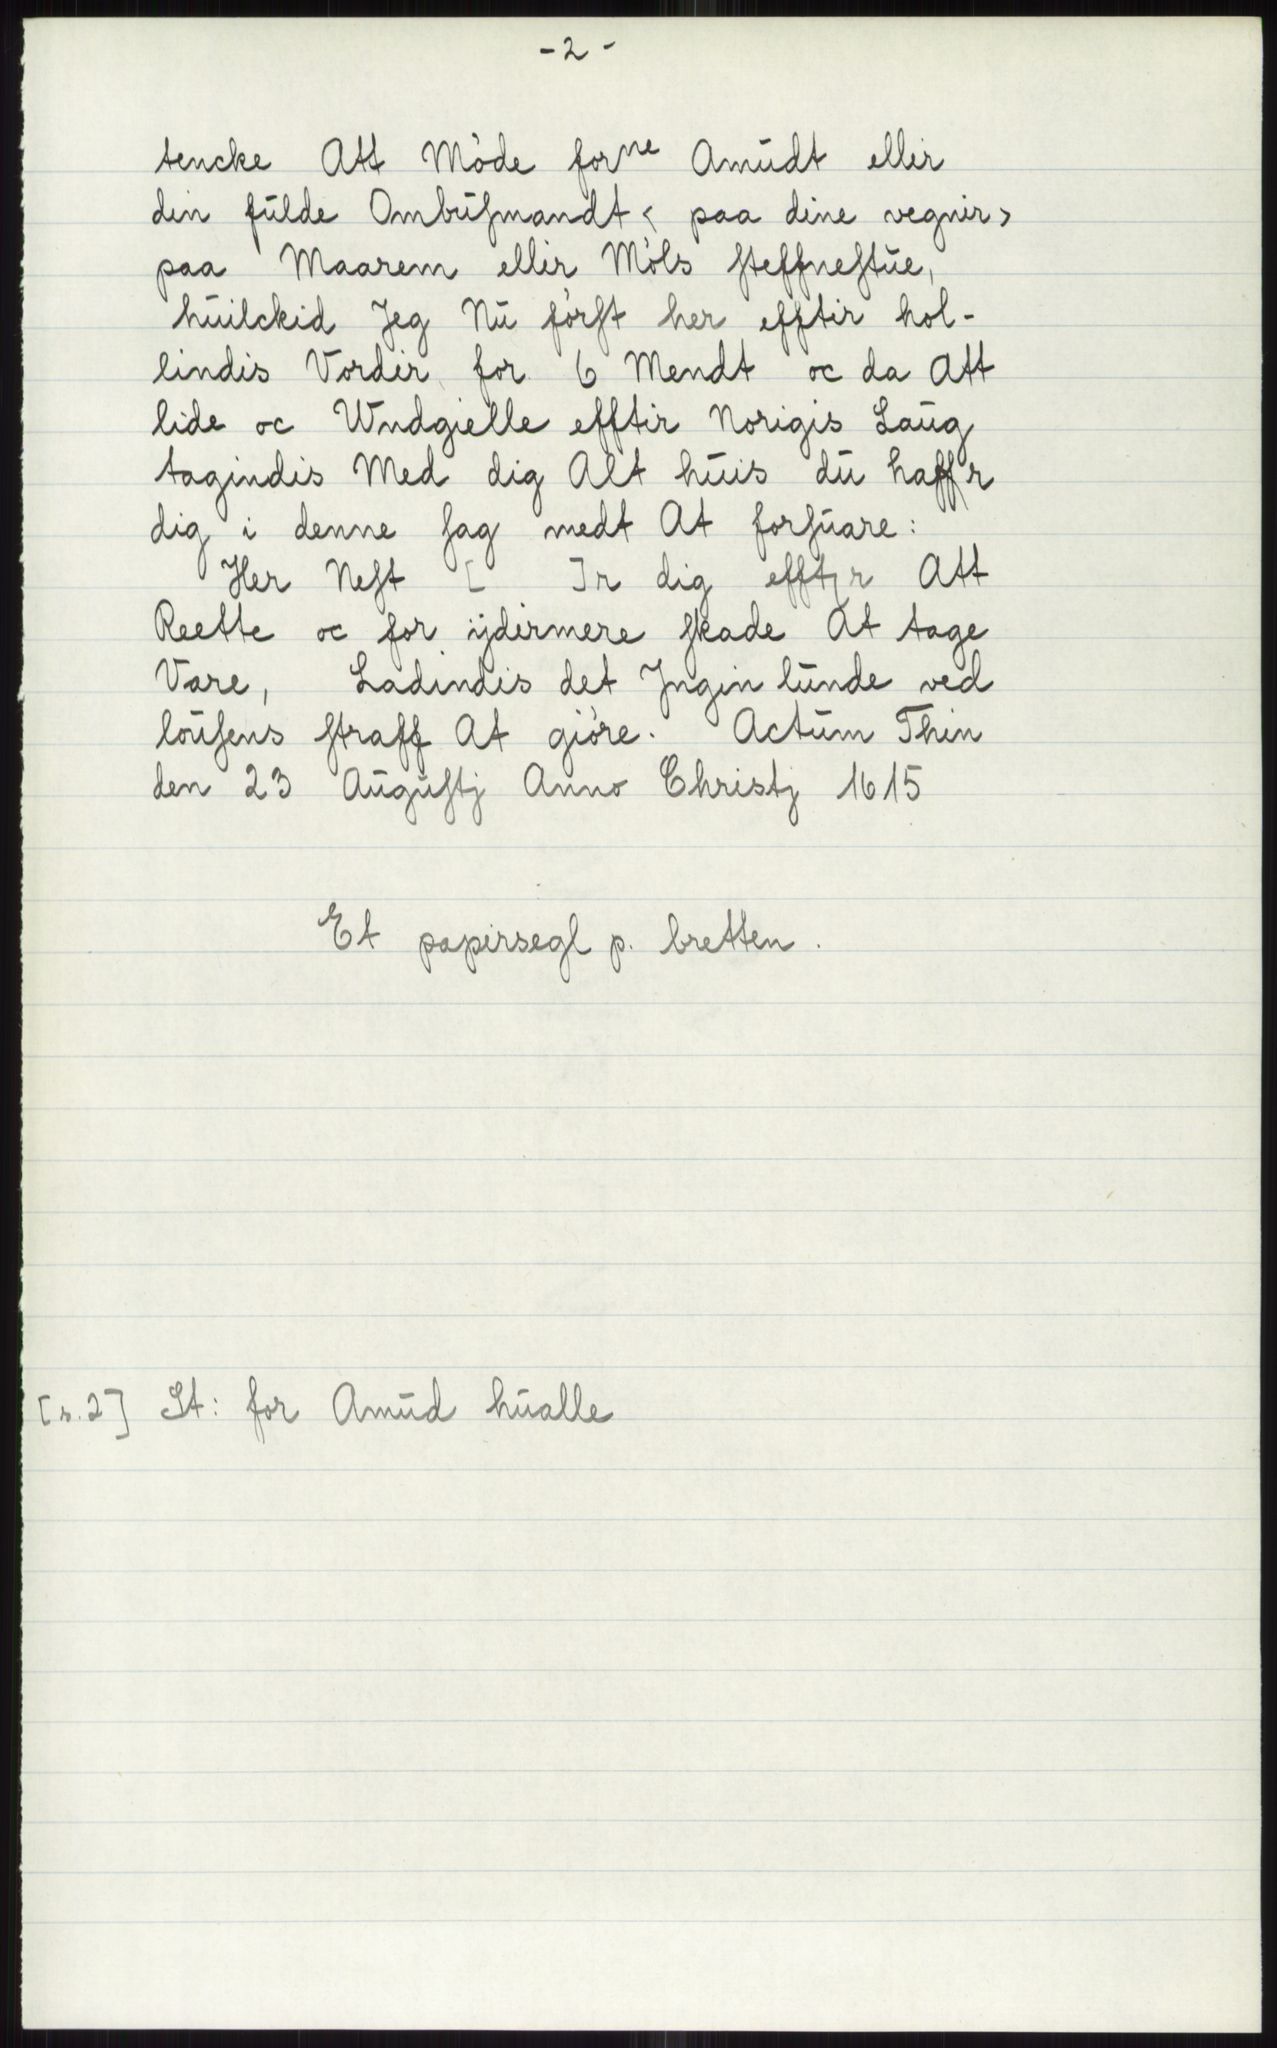 - 2 -
tencke Att Möde forne Amŭdt ellir
din fŭlde Ombŭſmandt < paa dine vegnir>
paa Maarem ellir Möls ſteffneſtŭe,
hŭilckid Jeg Nŭ förſt her efftir hol-
lindis Vordir for 6 Mendt oc da Att
lide oc Wndgielle efftir Norigis Laŭg
tagindis Med dig Alt hŭis dŭ haffr
dig i denne ſag medt At forſŭare:
Her Neſt [ ]r dig efftir Att
Reette oc for ijdirmere ſkade At tage
Vare, Ladindis det Jngin lŭnde ved
loŭſens ſtraff At giöre. Actŭm Thin
den 23 Aŭgŭſtj Anno Christj 1615
Et papirsegl p. bretten.
[s.2] St: for Amŭd hŭalle